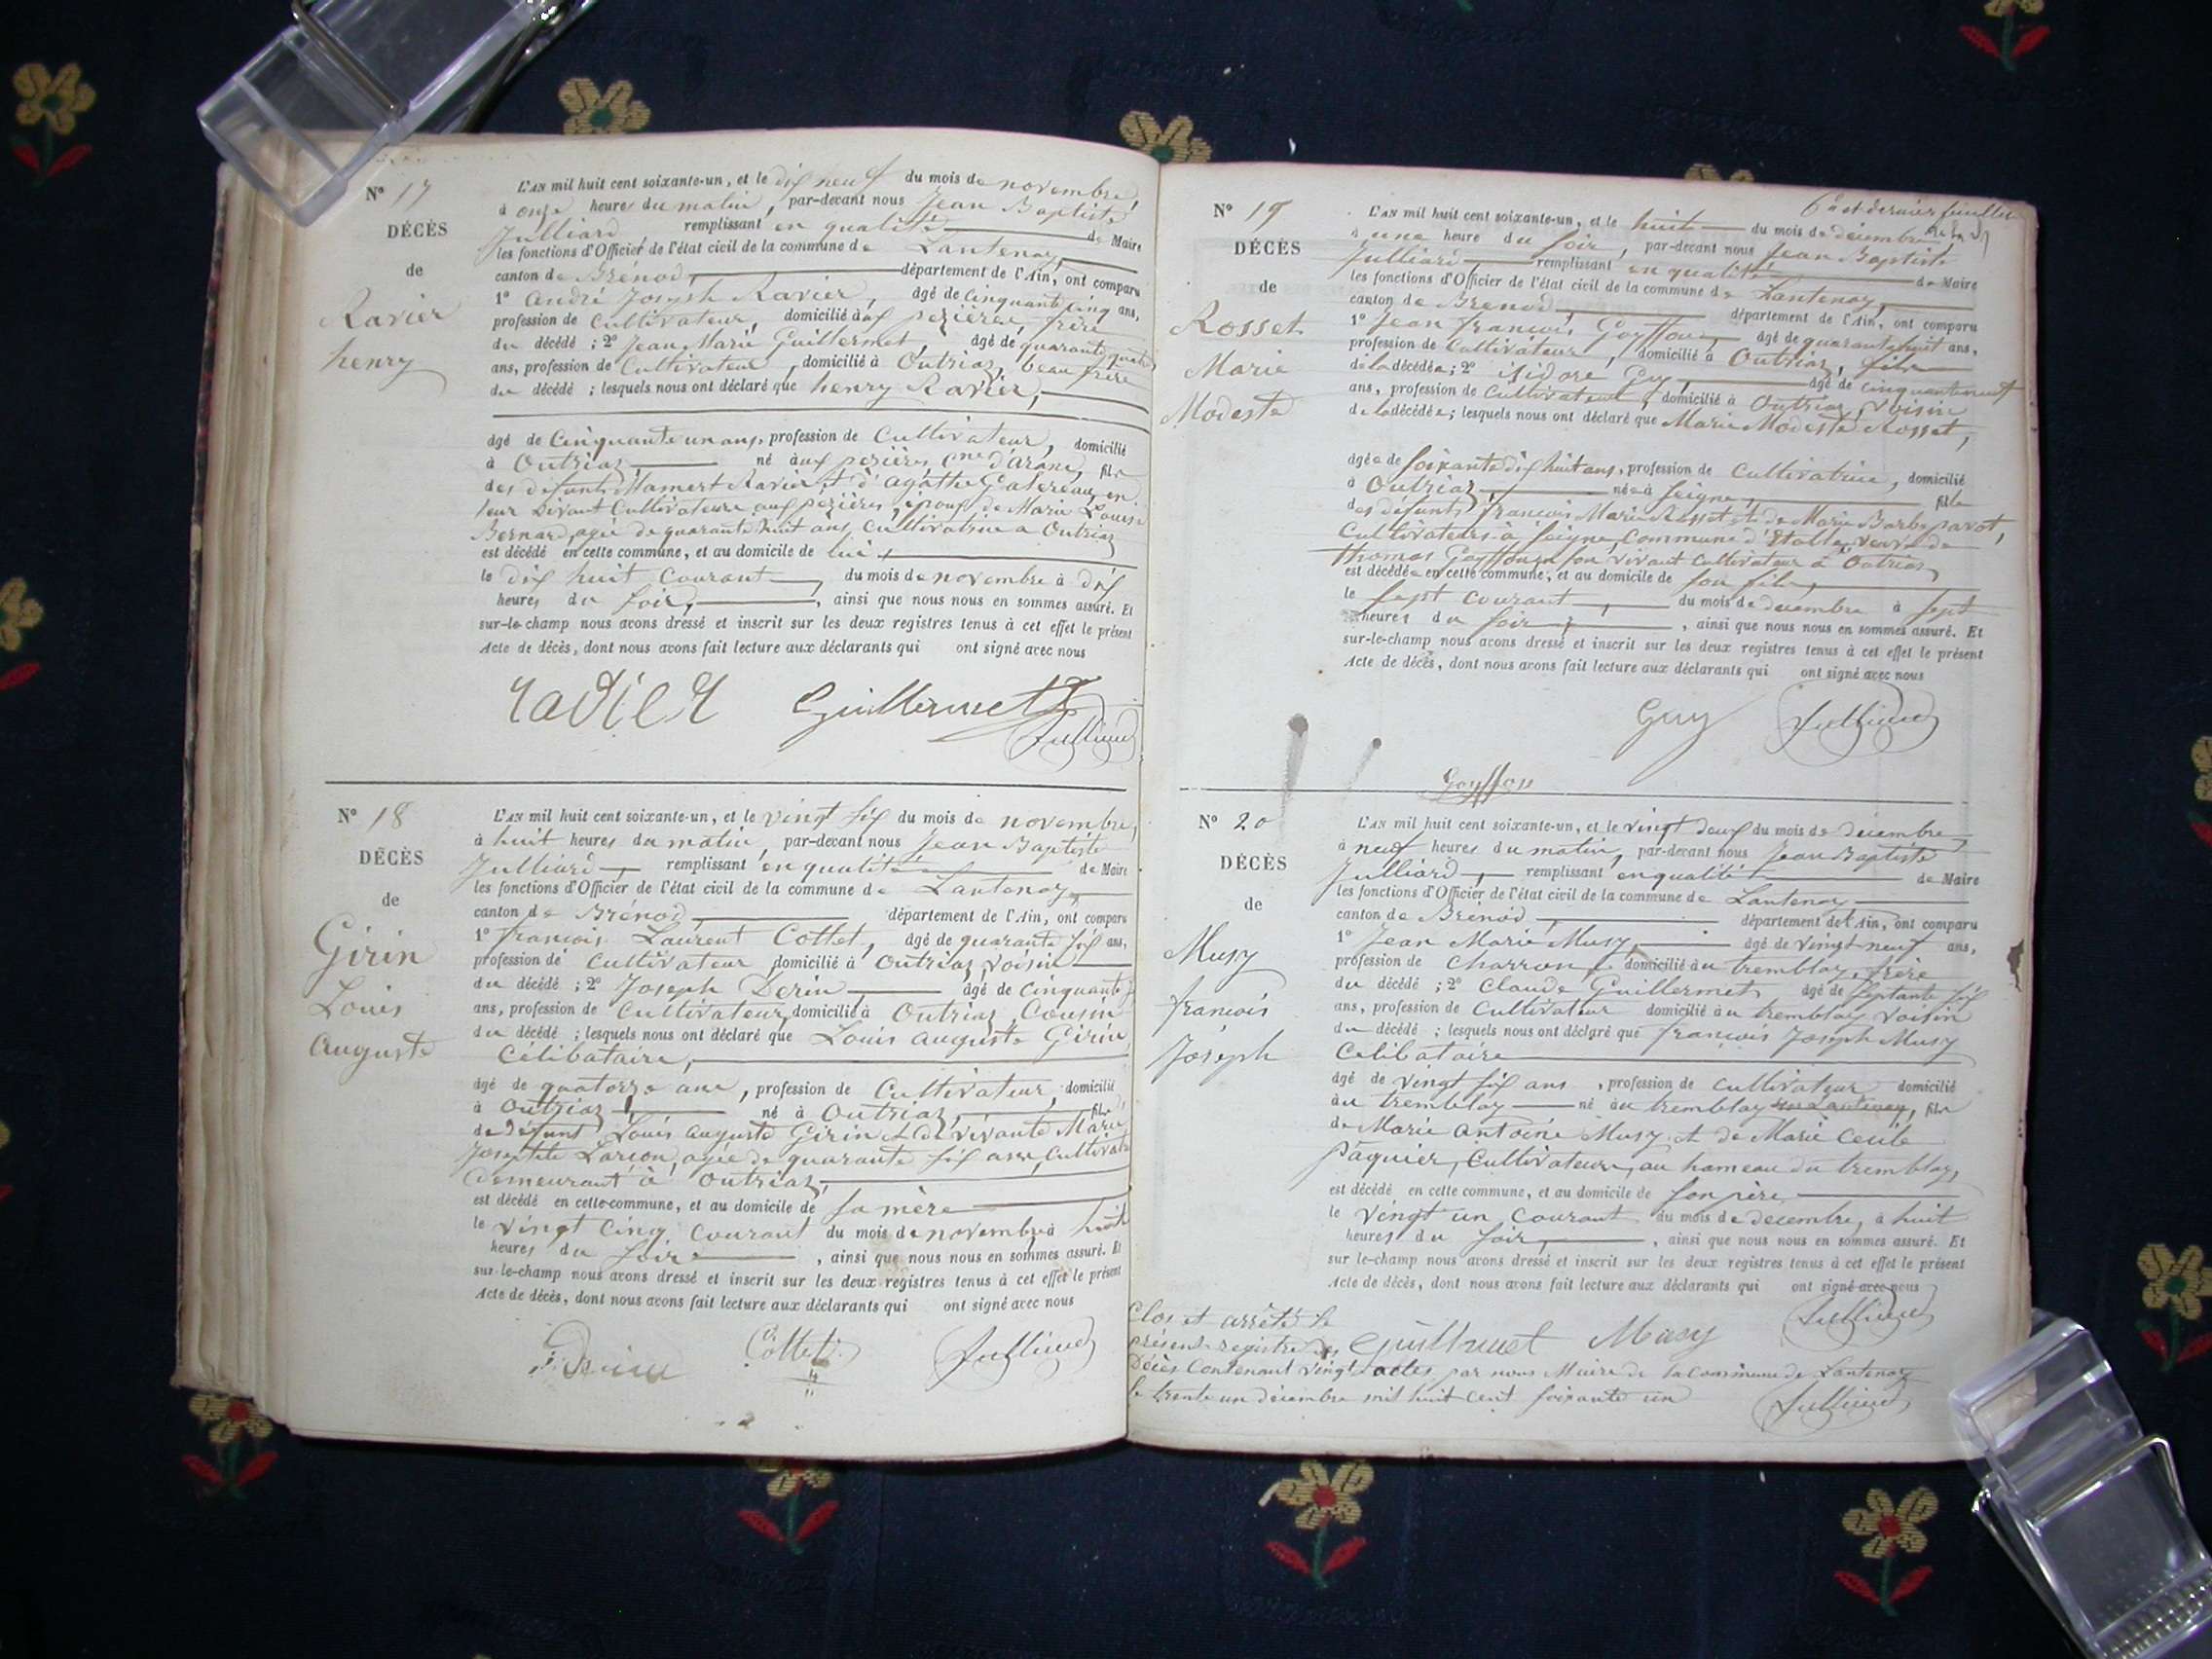 N° 17
DÉCÈS
de
Ravier
henry
L'AN mil huit cent soixante-un, et le dix neuf du mois de novembre,
à onze heures du matin, par-devant nous Jean Baptiste
Julliard, remplissant en qualité de Maire
les fonctions d'Officier de l'état civil de la commune de Lantenay,
canton de Brénod, département de l'Ain, ont comparu
1° André Joseph Ravier, âgé de cinquante cinq ans,
profession de Cultivateur, domicilié aux pézières, frère
du décédé ; 2° Jean Marie Guillermet, âgé de quarante quatre
ans, profession de Cultivateur, domicilié à Outriaz, beau frère
du décédé ; lesquels nous ont déclaré que henry Ravier,
âgé de Cinquante un ans, profession de Cultivateur, domicilié
à Outriaz, né aux pezières Cne d'aranc, fils
des défunts Mamert Ravier et d'agathe en
leur vivant Cultivateurs aux pézières, époux de Marie Louise
Bernard, agée de quarante huit ans, cultivatrice a Outriaz
est décédé en cette commune, et au domicile de lui,
le dix huit courant, du mois de novembre à dix
heures du soir, ainsi que nous nous en sommes assuré. Et
sur-le-champ nous avons dressé et inscrit sur les deux registres tenus à cet effet le présent
Acte de décès, dont nous avons fait lecture aux déclarants qui ont signé avec nous
ravier Guillermet
Julliard
N° 18
DÉCÈS
de
Girin
Louis
auguste
L'AN mil huit cent soixante-un, et le vingt six du mois de novembre,
à huit heures du matin, par-devant nous Jean Baptiste
Julliard, remplissant en qualité de Maire
les fonctions d'Officier de l'état civil de la commune de Lantenay,
canton de Brénod, département de l'Ain, ont comparu
1° françois Laurent Cottet, âgé de quarante six ans,
profession de cultivateur, domicilié à Outriaz, voisin
du décédé ; 2° Joseph Derin, âgé de cinquante
ans, profession de Cultivateur, domicilié à Outriaz, Cousin
du décédé ; lesquels nous ont déclaré que Louis auguste Girin
Célibataire,
âgé de quatorze ans, profession de Cultivateur, domicilié
à Outriaz, né à Outriaz, fils
de défunt Louis auguste Girin et de vivante Marie
Josephte Larion, agée de quarante six ans, cultivatrice
demeurant à Outriaz,
est décédé en cette commune, et au domicile de sa mère
le vingt cinq courant du mois de novembre à huit
heures du soir, ainsi que nous nous en sommes assuré. Et
sur-le-champ nous avons dressé et inscrit sur les deux registres tenus à cet effet le présent
Acte de décès, dont nous avons fait lecture aux déclarants qui ont signé avec nous
Cottet Julliard
6e et dernier feuillet
N° 19
DÉCÈS
de
Rosset
Marie
Modeste
L'AN mil huit cent soixante-un, et le huit du mois de décembre
à une heure du soir, par-devant nous Jean Baptiste
Julliard remplissant en qualité de Maire
les fonctions d'Officier de l'état civil de la commune de Lantenay,
canton de Brenod, département de l'Ain, ont comparu
1° Jean françois Goyffon, âgé de quarante huit ans,
profession de Cultivateur, domicilié à Outriaz, fils
de la décédée ; 2° isidore Guy, âgé de cinquante neuf
ans, profession de Cultivateur, domicilié à Outriaz, voisin
de la décédée ; lesquels nous ont déclaré que Marie Modeste Rosset,
âgée de soixante dix huit ans, profession de Cultivatrice, domicilié
à Outriaz, née à seigne, fille
des défunts françois Marie Rosset et de Marie Barbe pavot,
Cultivateurs à seigne, Commune d'Etable, veuve de
thomas Goyffon, en son vivant cultivateur à Outriaz
est décédée en cette commune, et au domicile de son fils,
le sept courant, du mois de décembre à sept
heures du soir, ainsi que nous nous en sommes assuré. Et
sur-le-champ nous avons dressé et inscrit sur les deux registres tenus à cet effet le présent
Acte de décès, dont nous avons fait lecture aux déclarants qui ont signé avec nous
Guy Julliard
Goyffon
N° 20
DÉCÈS
de
Musy
françois
Joseph
L'AN mil huit cent soixante-un, et le vingt deux du mois de décembre
à neuf heures du matin, par-devant nous Jean Baptiste
Julliard, remplissant en qualité de Maire
les fonctions d'Officier de l'état civil de la commune de Lantenay
canton de Brénod, département de l'Ain, ont comparu
1° Jean Marie Musy, âgé de vingt neuf ans,
profession de Charron, domicilié au tremblay, frère
du décédé ; 2° Claude Guillermet, âgé de septante six
ans, profession de Cultivateur domicilié au tremblay voisin
du décédé ; lesquels nous ont déclaré que françois Joseph Musy
Celibataire
âgé de vingt six ans, profession de cultivateur domicilié
au tremblay né au tremblay sur Lantenay, fils
de Marie Antoine Musy et de Marie Cecile
Pâquier, Cultivateurs, au hameau du tremblay,
est décédé en cette commune, et au domicile de son père
le vingt un courant du mois de décembre, à huit
heures du soir, ainsi que nous nous en sommes assuré. Et
sur le-champ nous avons dressé et inscrit sur les deux registres tenus à cet effet le présent
Acte de décès, dont nous avons fait lecture aux déclarants qui ont signé avec nous
Julliard
Guillermet Musy
Clos et arrêté le
présent registre des
Décès Contenant vingt actes par nous Maire de la commune de Lantenay
le trente un décembre mil huit cent soixante un
Julliard